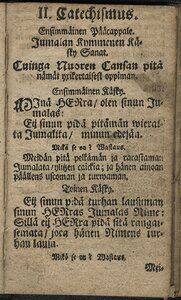 II. Catechismus.
Ensimmäinen Pääcappale.
Jumalan Kymmenen Kä-
sky Sanat.
Cuinga Nuoren Cansan pitä
nämät yxikertaisest oppiman.
Ensimmäinen Käsky.
MInä HERra/ olen sinun Ju-
malas:
Ei sinun pidä pitämän wierai-
ta Jumalita/ minun edesäs.
Mikä se on? Wastaus.
Meidän pitä pelkämän ja racastaman
Jumalata/ ylitzen caickia; ja hänen ainoan
päällens uscoman ja turwaman.
Toinen Käsky.
Ei sinun pidä turhan lausuman
sinun HERras Jumalas Nime:
Sillä ei HERra pidä sitä rangai-
semata/ joca hänen Nimens tur-
han lausu.
Mikä se on? Wastaus.
Mei-